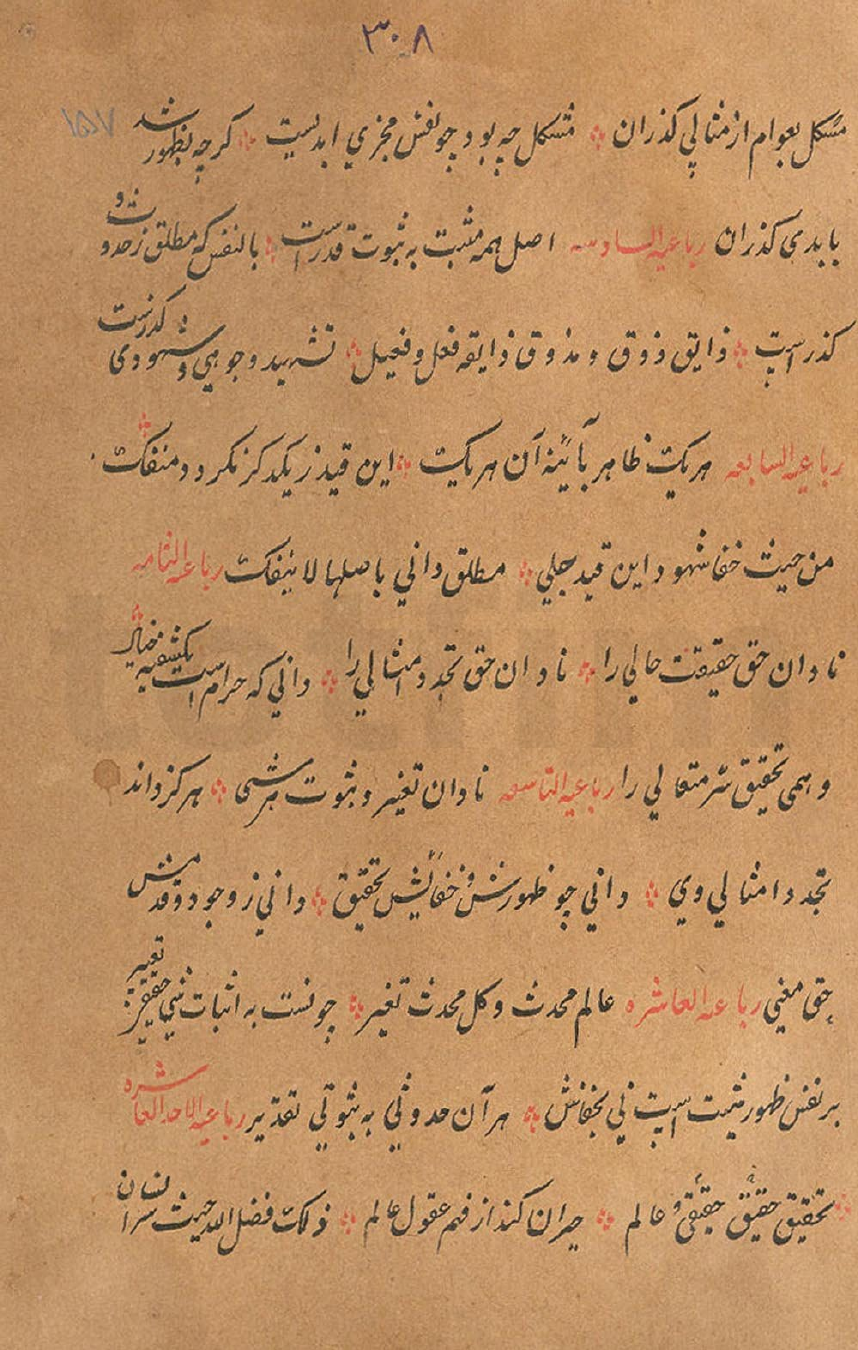 ٣٠٨
١٥٧
مشکل بعوام از مثالی گذران ※ مشکل چه بود چو نفس مجزی ابدیست ※ گرچه بظهور شد
بابدی گذران رباعیه السادسه اصل همه مثبت به ثبوت قدر است ※ بالنفس که مطلق ز حدوث و
گذر است ※ ذایق ذوق و مذوق ذایقه فعل و فعیل ※ تشهید وجوبی و شهودی گذرنیست
رباعیه السابعه هریک ظاهر بآئینه آن هریک ※ این قید ز یکدگر نگردد منفک ※
من حیث خفا شهود این قید جلی ※ مطلق دانی باصلها لا ینفک رباعیه الثامنه
نادان حق حقیقت حالی را ※ نادان حق تجدد امثالی را ※ دانی که حرام است بکشفیه خیالی
وهمی تحقیق سر متعالی را رباعیه التاسعه نادان تغیر و ثبوت هر شی ※ هرگز داند
تجدد امثالی وی ※ دانی چو ظهورش و خفائیش تحقیق ※ دانی ز وجود و قدمش
حق معنی رباعیه العاشره عالم محدث و کل محدث تغیر ※ چونست به اثبات شی حقیقی تعبیر
بر نفس ظهور مثبت است نی بخفاش ※ هر آن حدوثی به ثبوتی تقدیر رباعیه الاحد العاشره
※ تحقیق حقیق حقیقی و عالم ※ حیران کند از فهم عقول عالم ※ ذلک فضل الله حیث انسان سرا